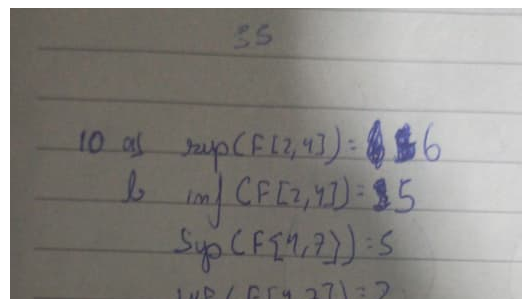 35
10 a) sup(F[2,4])= 6
b inf (F[2,4])= 5
Sup(F[4,7])=5